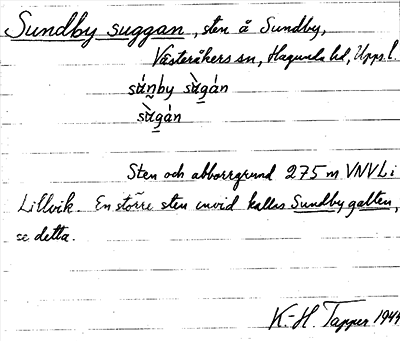 Sundby suggan, sten å Sundby,
Västeråkers sn, Hagunda hd, Upps. l.
sún̰by sùgán
sùgán
Sten och abborrgrund 275 m VNV Li
Lillvik. En större sten invid kallas Sundby galten,
se detta.
K.-H. Tapper 1944